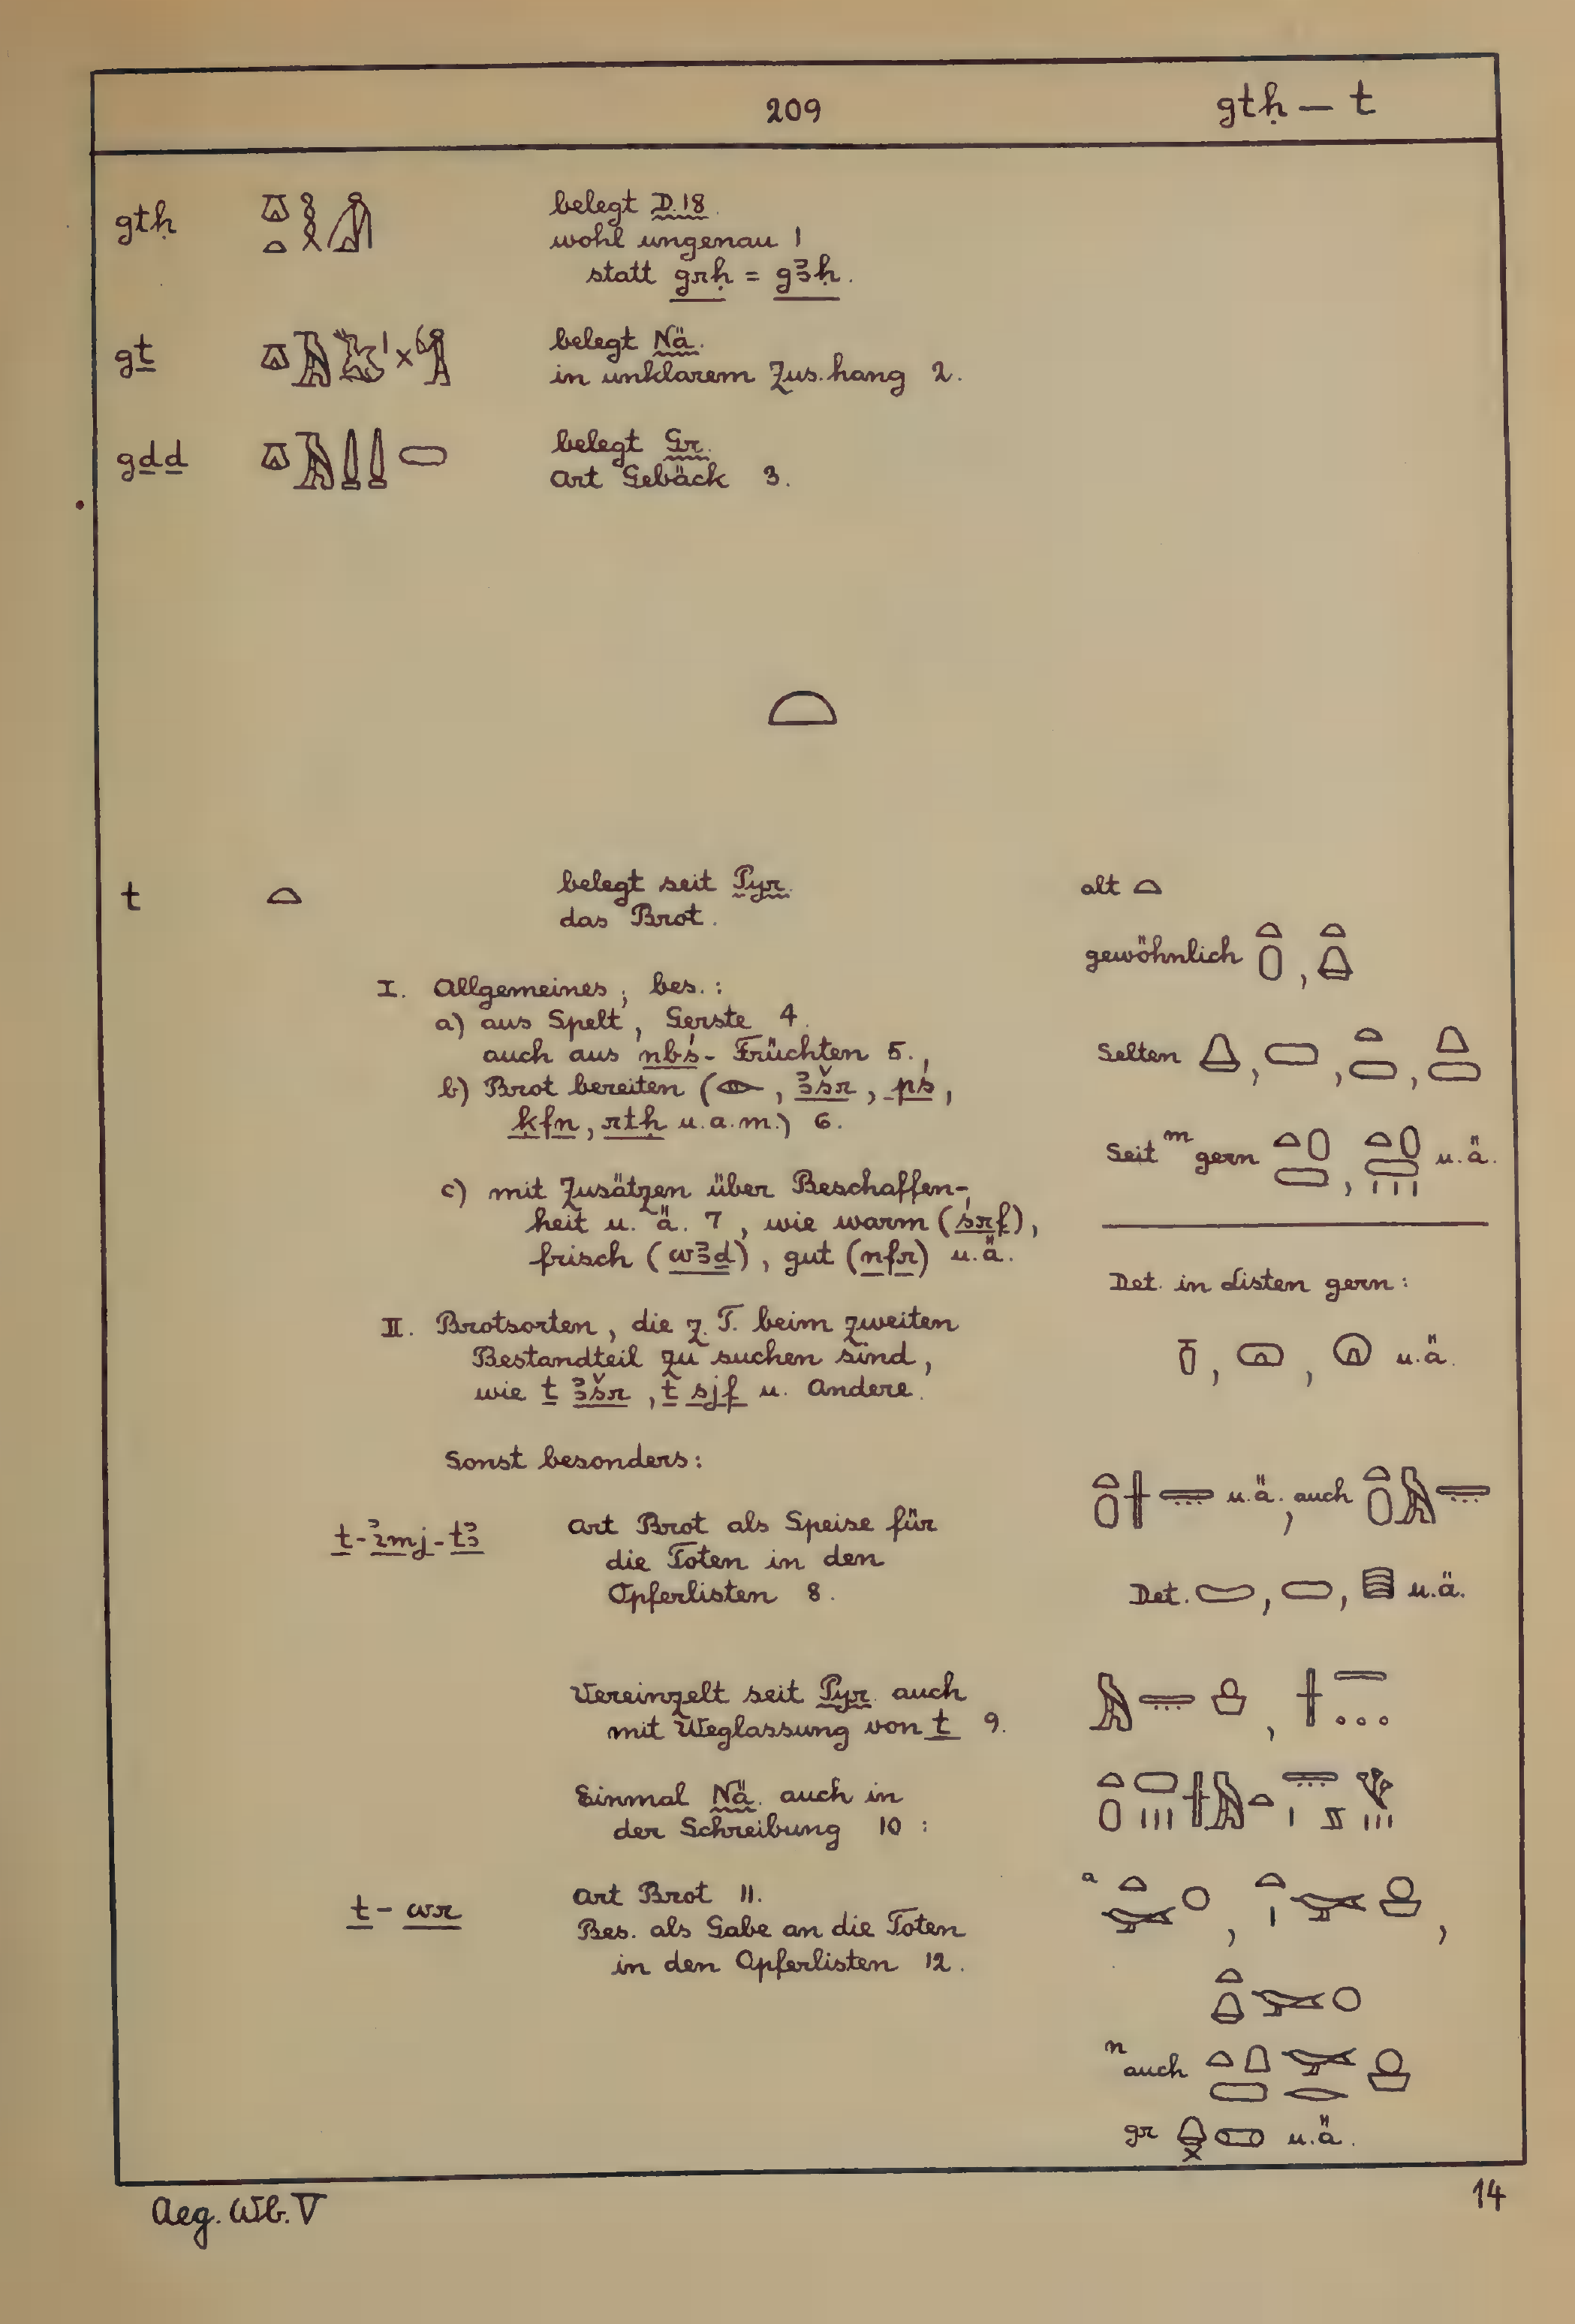 209 gtḥ — t
gtḥ belegt D.18.
wohl ungenau 1
statt grḥ = gꜣḥ.
gṯ belegt Nä.
in unklarem Zus.hang 2.
gḏḏ belegt Gr.
Art Gebäck 3.
t belegt seit Pyr.
das Brot.
alt
gewöhnlich ,
I. Allgemeines, bes.:
a) aus Spelt, Gerste 4.
auch aus nbś-Früchten 5.,
b) Brot bereiten ( , ꜣšr, pś,
ḳfn, rtḥ u.a.m.) 6.
Selten , , ,
c) mit Zusätzen über Beschaffen-
heit u. ä. 7, wie warm (śrf),
frisch (wꜣḏ), gut (nfr) u.ä.
Seit m gern , u.ä.
Det. in Listen gern:
, , u.ä.
II. Brotsorten, die z. T. beim zweiten
Bestandteil zu suchen sind,
wie t ꜣšr, t sjf u. Andere.
Sonst besonders:
u.ä., auch
t-ꜣimj-tꜣ Art Brot als Speise für
die Toten in den
Opferlisten 8.
Det. , , u.ä.
Vereinzelt seit Pyr. auch
mit Weglassung von t 9.
,
Einmal Nä. auch in
der Schreibung 10:
t-wr Art Brot 11.
Bes. als Gabe an die Toten
in den Opferlisten 12.
a , ,
n auch
gr u.ä.
Aeg. Wb. V 14